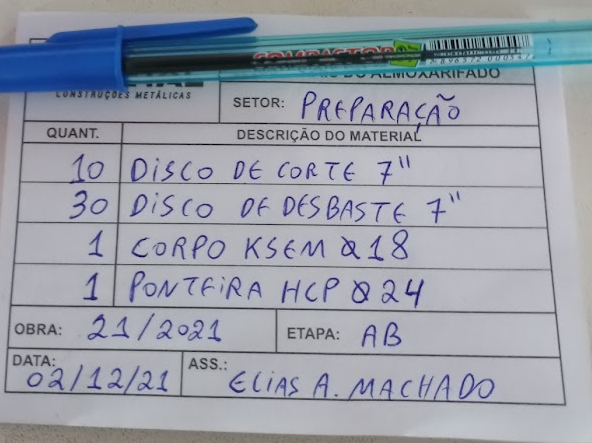 COMPACTOR
CONSTRUÇÕES METÁLICAS
DO ALMOXARIFADO
SETOR: PREPARAÇÃO
QUANT. DESCRIÇÃO DO MATERIAL
10 DISCO DE CORTE 7"
30 DISCO DE DESBASTE 7"
1 CORPO KSEM Ø18
1 PONTEIRA HCP Ø24
OBRA: 21/2021 ETAPA: AB
DATA: 02/12/21 ASS.: ELIAS A. MACHADO